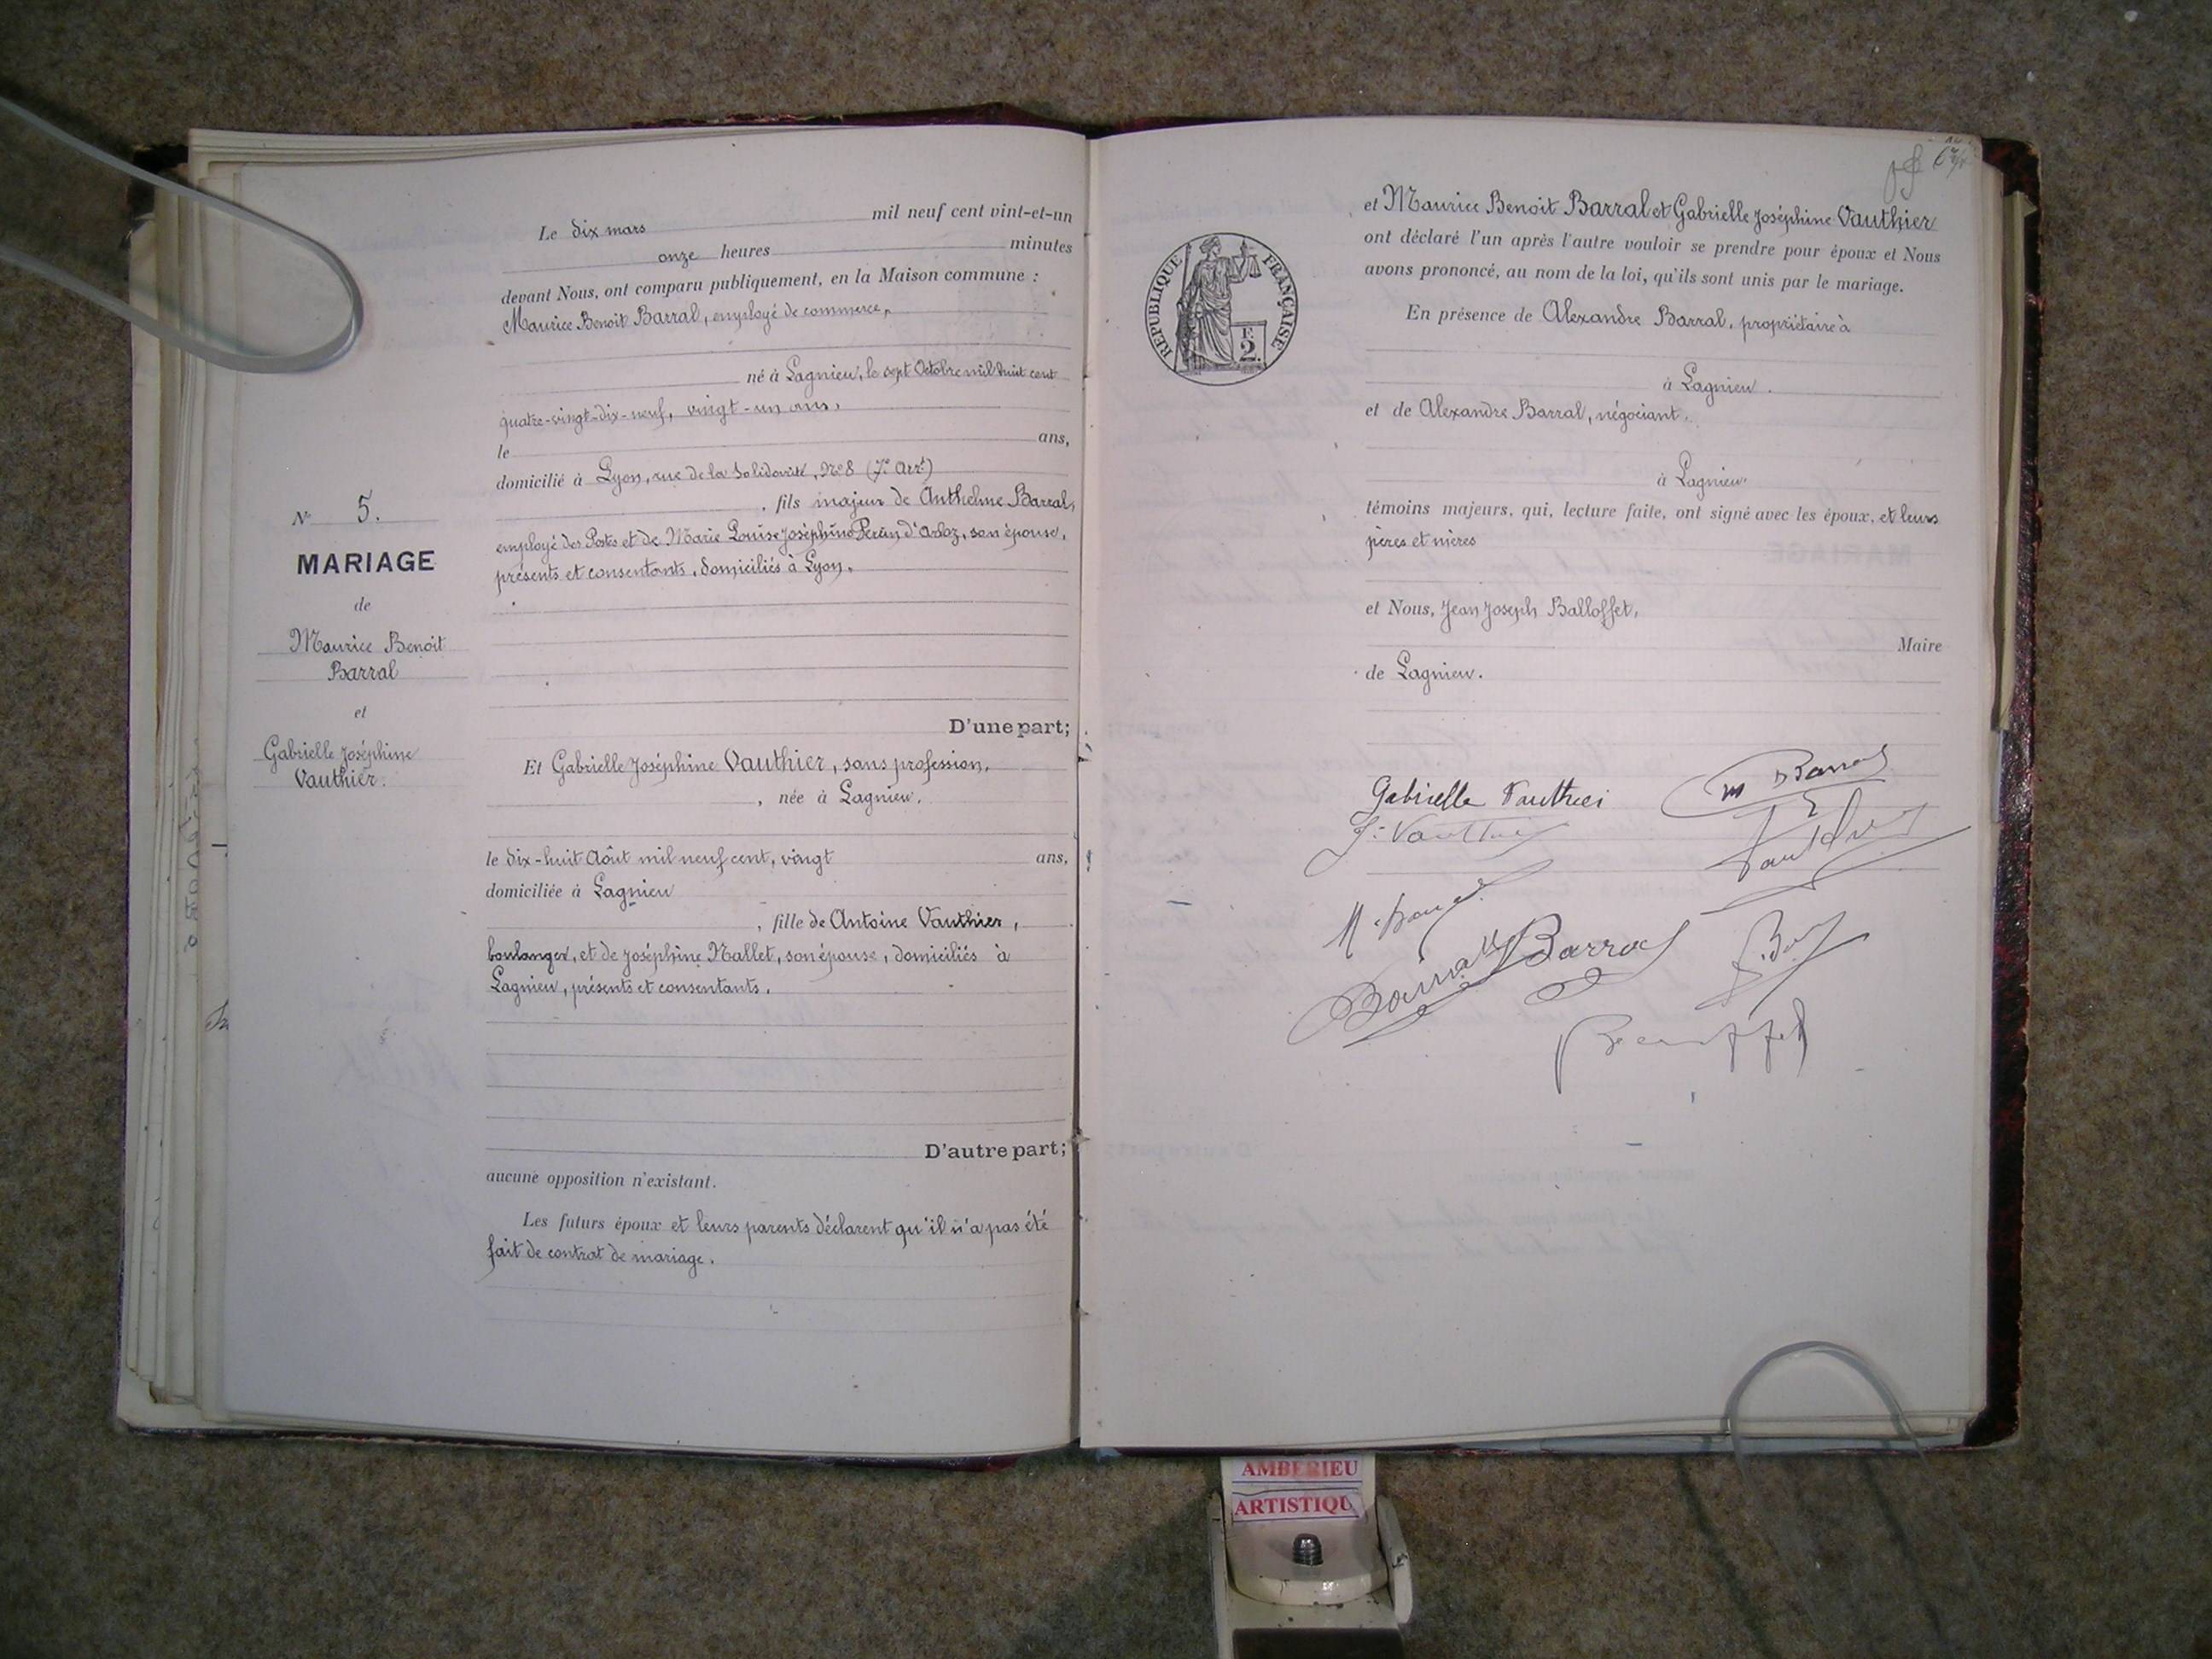 Le dix mars mil neuf cent vint-et-un
onze heures minutes
devant Nous, ont comparu publiquement, en la Maison commune :
Maurice Benoit Barral, employé de commerce,
né à Lagnieu, le sept Octobre mil huit cent
quatre-vingt-dix-neuf, vingt-un ans,
le ans,
domicilié à Lyon, rue de la Solidarité, No 8 (7e Arrt)
, fils majeur de Anthelme Barral,
employé des Postes et de Marie Louise Joséphine d'Arloz, son épouse,
présents et consentants, domiciliés à Lyon,
N° 5.
MARIAGE
de
Maurice Benoit
Barral
et
Gabrielle Joséphine
Vauthier.
D'une part;
Et Gabrielle Joséphine Vauthier, sans profession,
, née à Lagnieu,
le dix-huit Août mil neuf cent, vingt ans,
domiciliée à Lagnieu
, fille de Antoine Vauthier,
boulanger, et de Joséphine Mallet, son épouse, domiciliés à
Lagnieu, présents et consentants.
D'autre part;
aucune opposition n'existant.
Les futurs époux et leurs parents déclarent qu'il n'a pas été
fait de contrat de mariage.
RÉPUBLIQUE FRANÇAISE
F.
2.
et Maurice Benoit Barral et Gabrielle Joséphine Vauthier
ont déclaré l'un après l'autre vouloir se prendre pour époux et Nous
avons prononcé, au nom de la loi, qu'ils sont unis par le mariage.
En présence de Alexandre Barral, propriétaire à
à Lagnieu.
et de Alexandre Barral, négociant,
à Lagnieu.
témoins majeurs, qui, lecture faite, ont signé avec les époux, et leurs
pères et mères
et Nous, Jean Joseph Balloffet,
Maire
de Lagnieu.
Gabrielle Vauthier M Barral
J. Vauthier Vauthier
Barral
AMBERIEU
ARTISTIQU